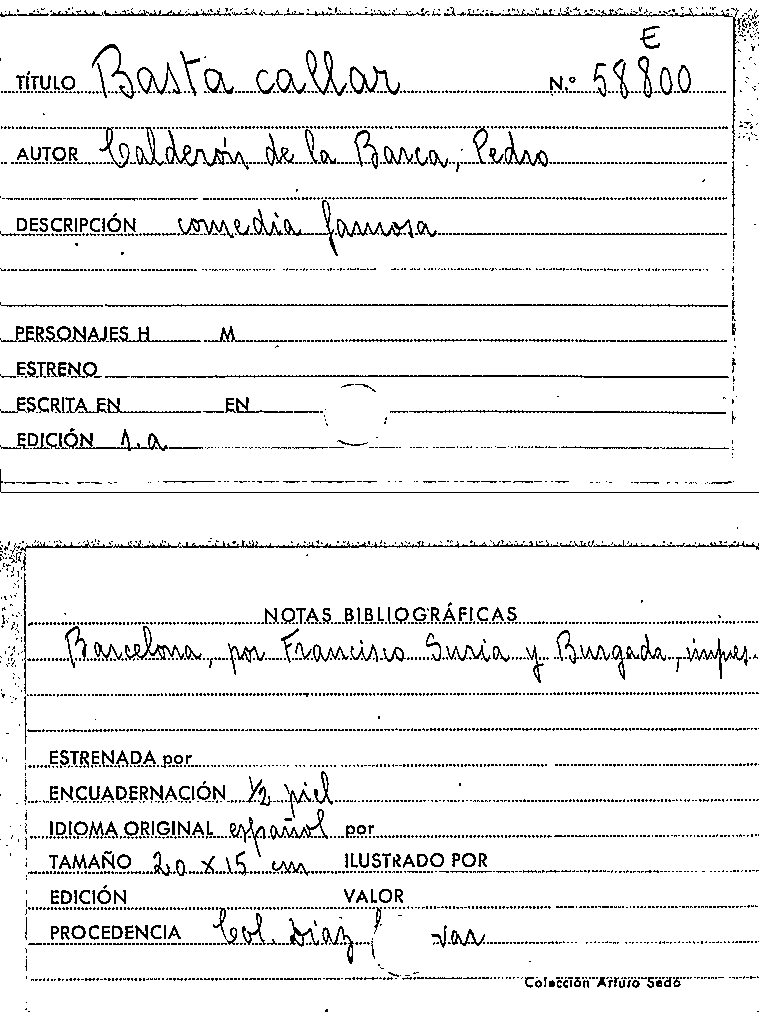 E
TÍTULO Basta callar N.º 58800
AUTOR Calderón de la Barca, Pedro
DESCRIPCIÓN comedia famosa
PERSONAJES H M
ESTRENO
ESCRITA EN EN
EDICIÓN 1.a
NOTAS BIBLIOGRÁFICAS
Barcelona, por Francisco Suria y Burgada, impres.
ESTRENADA por
ENCUADERNACIÓN 1/2 piel
IDIOMA ORIGINAL español por
TAMAÑO 20 x 15 cm ILUSTRADO POR
EDICIÓN VALOR
PROCEDENCIA Col. Díaz
Colección Arturo Sedó